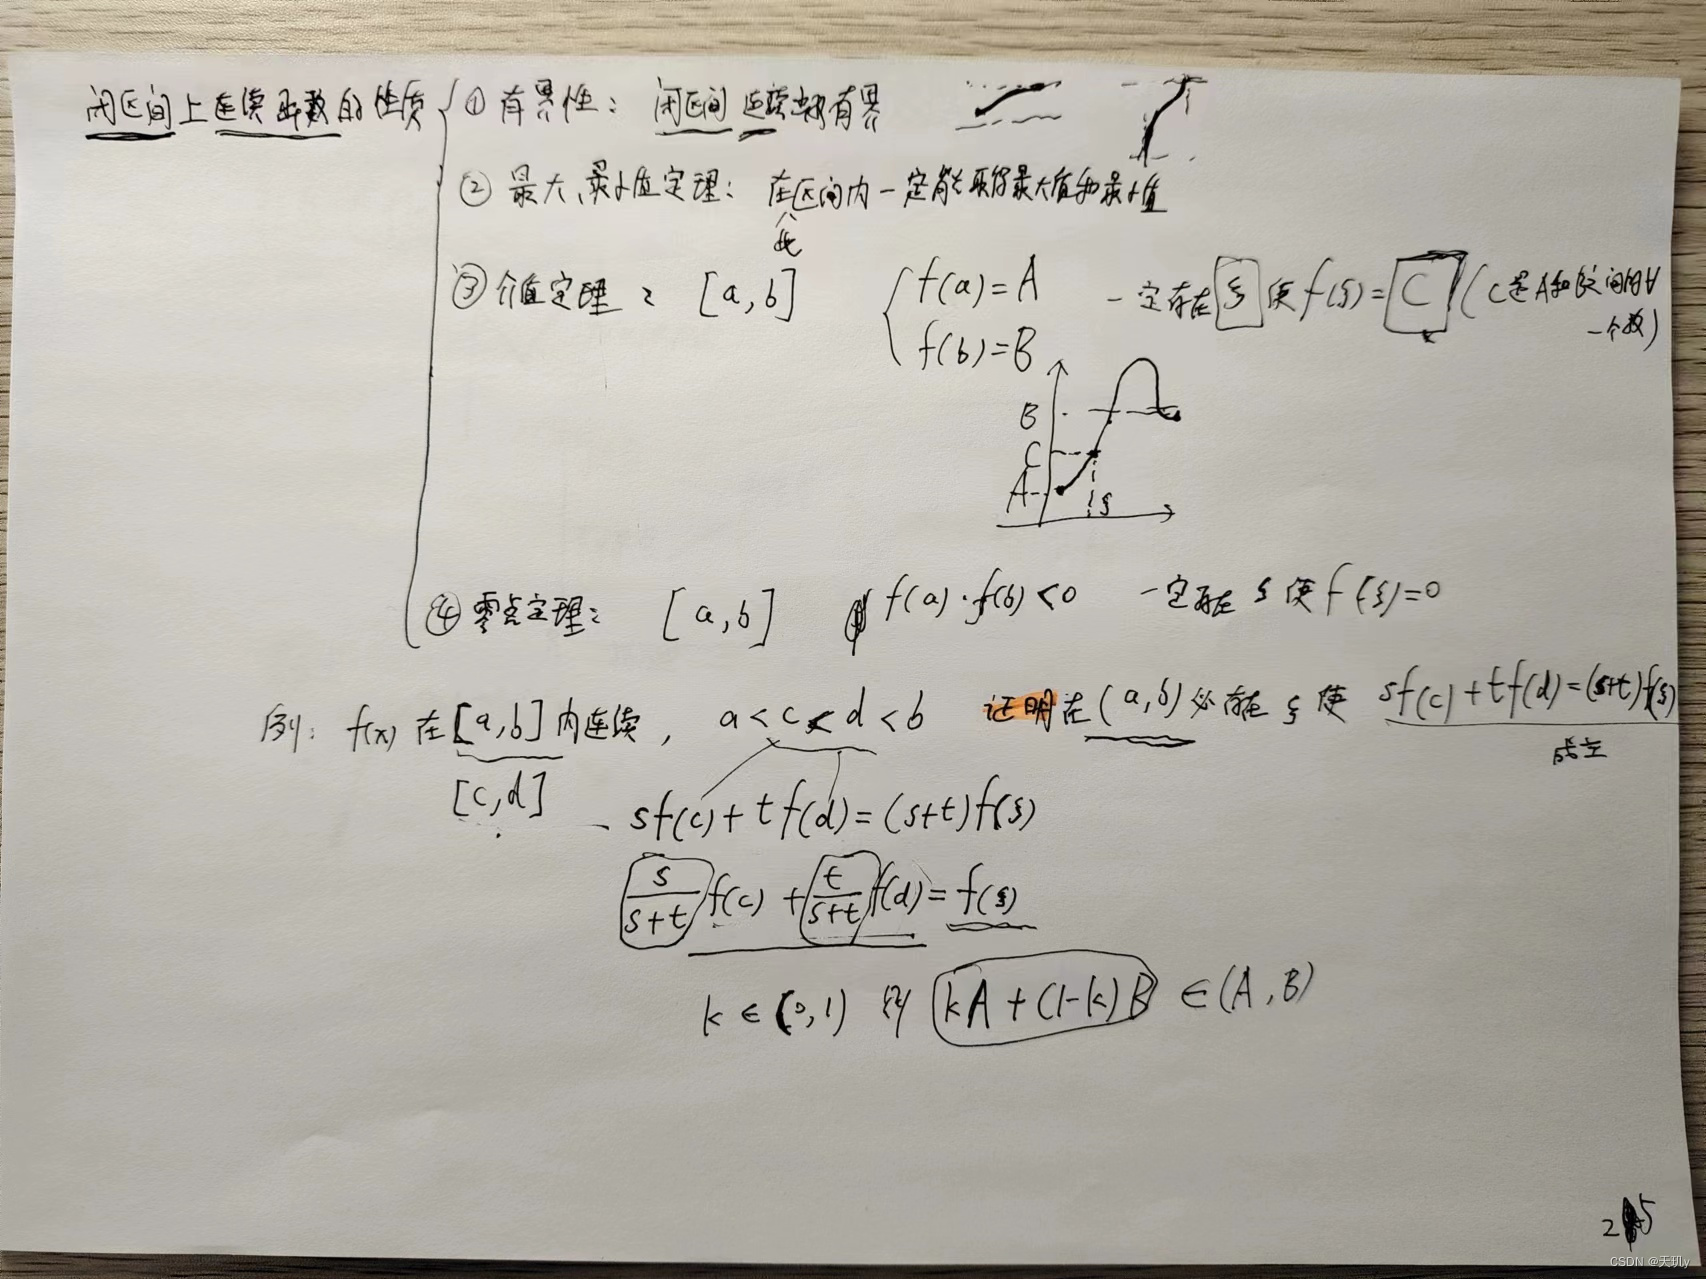 闭区间上连续函数的性质 { ① 有界性： 闭区间连续必有界
② 最大、最小值定理： 在区间内一定能取得最大值和最小值
此
③ 介值定理： [a,b] { f(a)=A 一定存在 ξ 使 f(ξ)=C (C是A和B之间的∀
f(b)=B 一个数)
B
C
A
ξ
④ 零点定理： [a,b] f(a)·f(b)<0 一定存在 ξ 使 f(ξ)=0
例： f(x) 在 [a,b] 内连续， a<c<d<b 证明在 (a,b) 必存在 ξ 使 sf(c)+tf(d)=(s+t)f(ξ)
成立
[c,d]
sf(c)+tf(d)=(s+t)f(ξ)
s/(s+t) f(c) + t/(s+t) f(d) = f(ξ)
k∈(0,1) 则 kA+(1-k)B ∈(A,B)
CSDN @天玑y